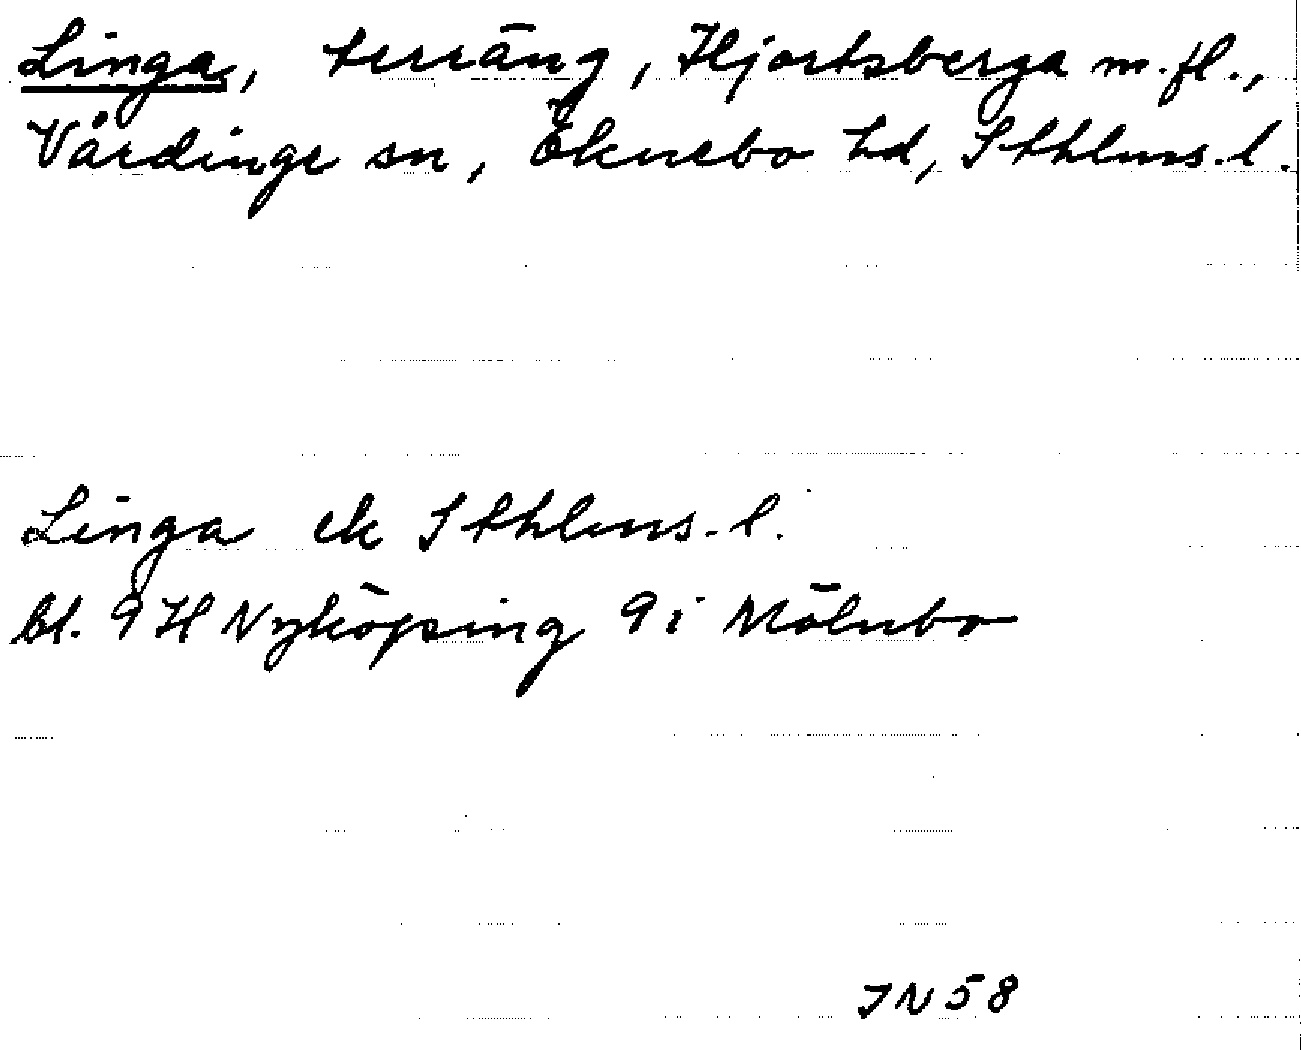 Linga, terräng, Hjortsberga m.fl.,
Vårdinge sn, Öknebo hd, Sthlms.l.
Linga ek Sthlms.l.
bl. 9H Nyköping 9i Mölnbo
JN 58